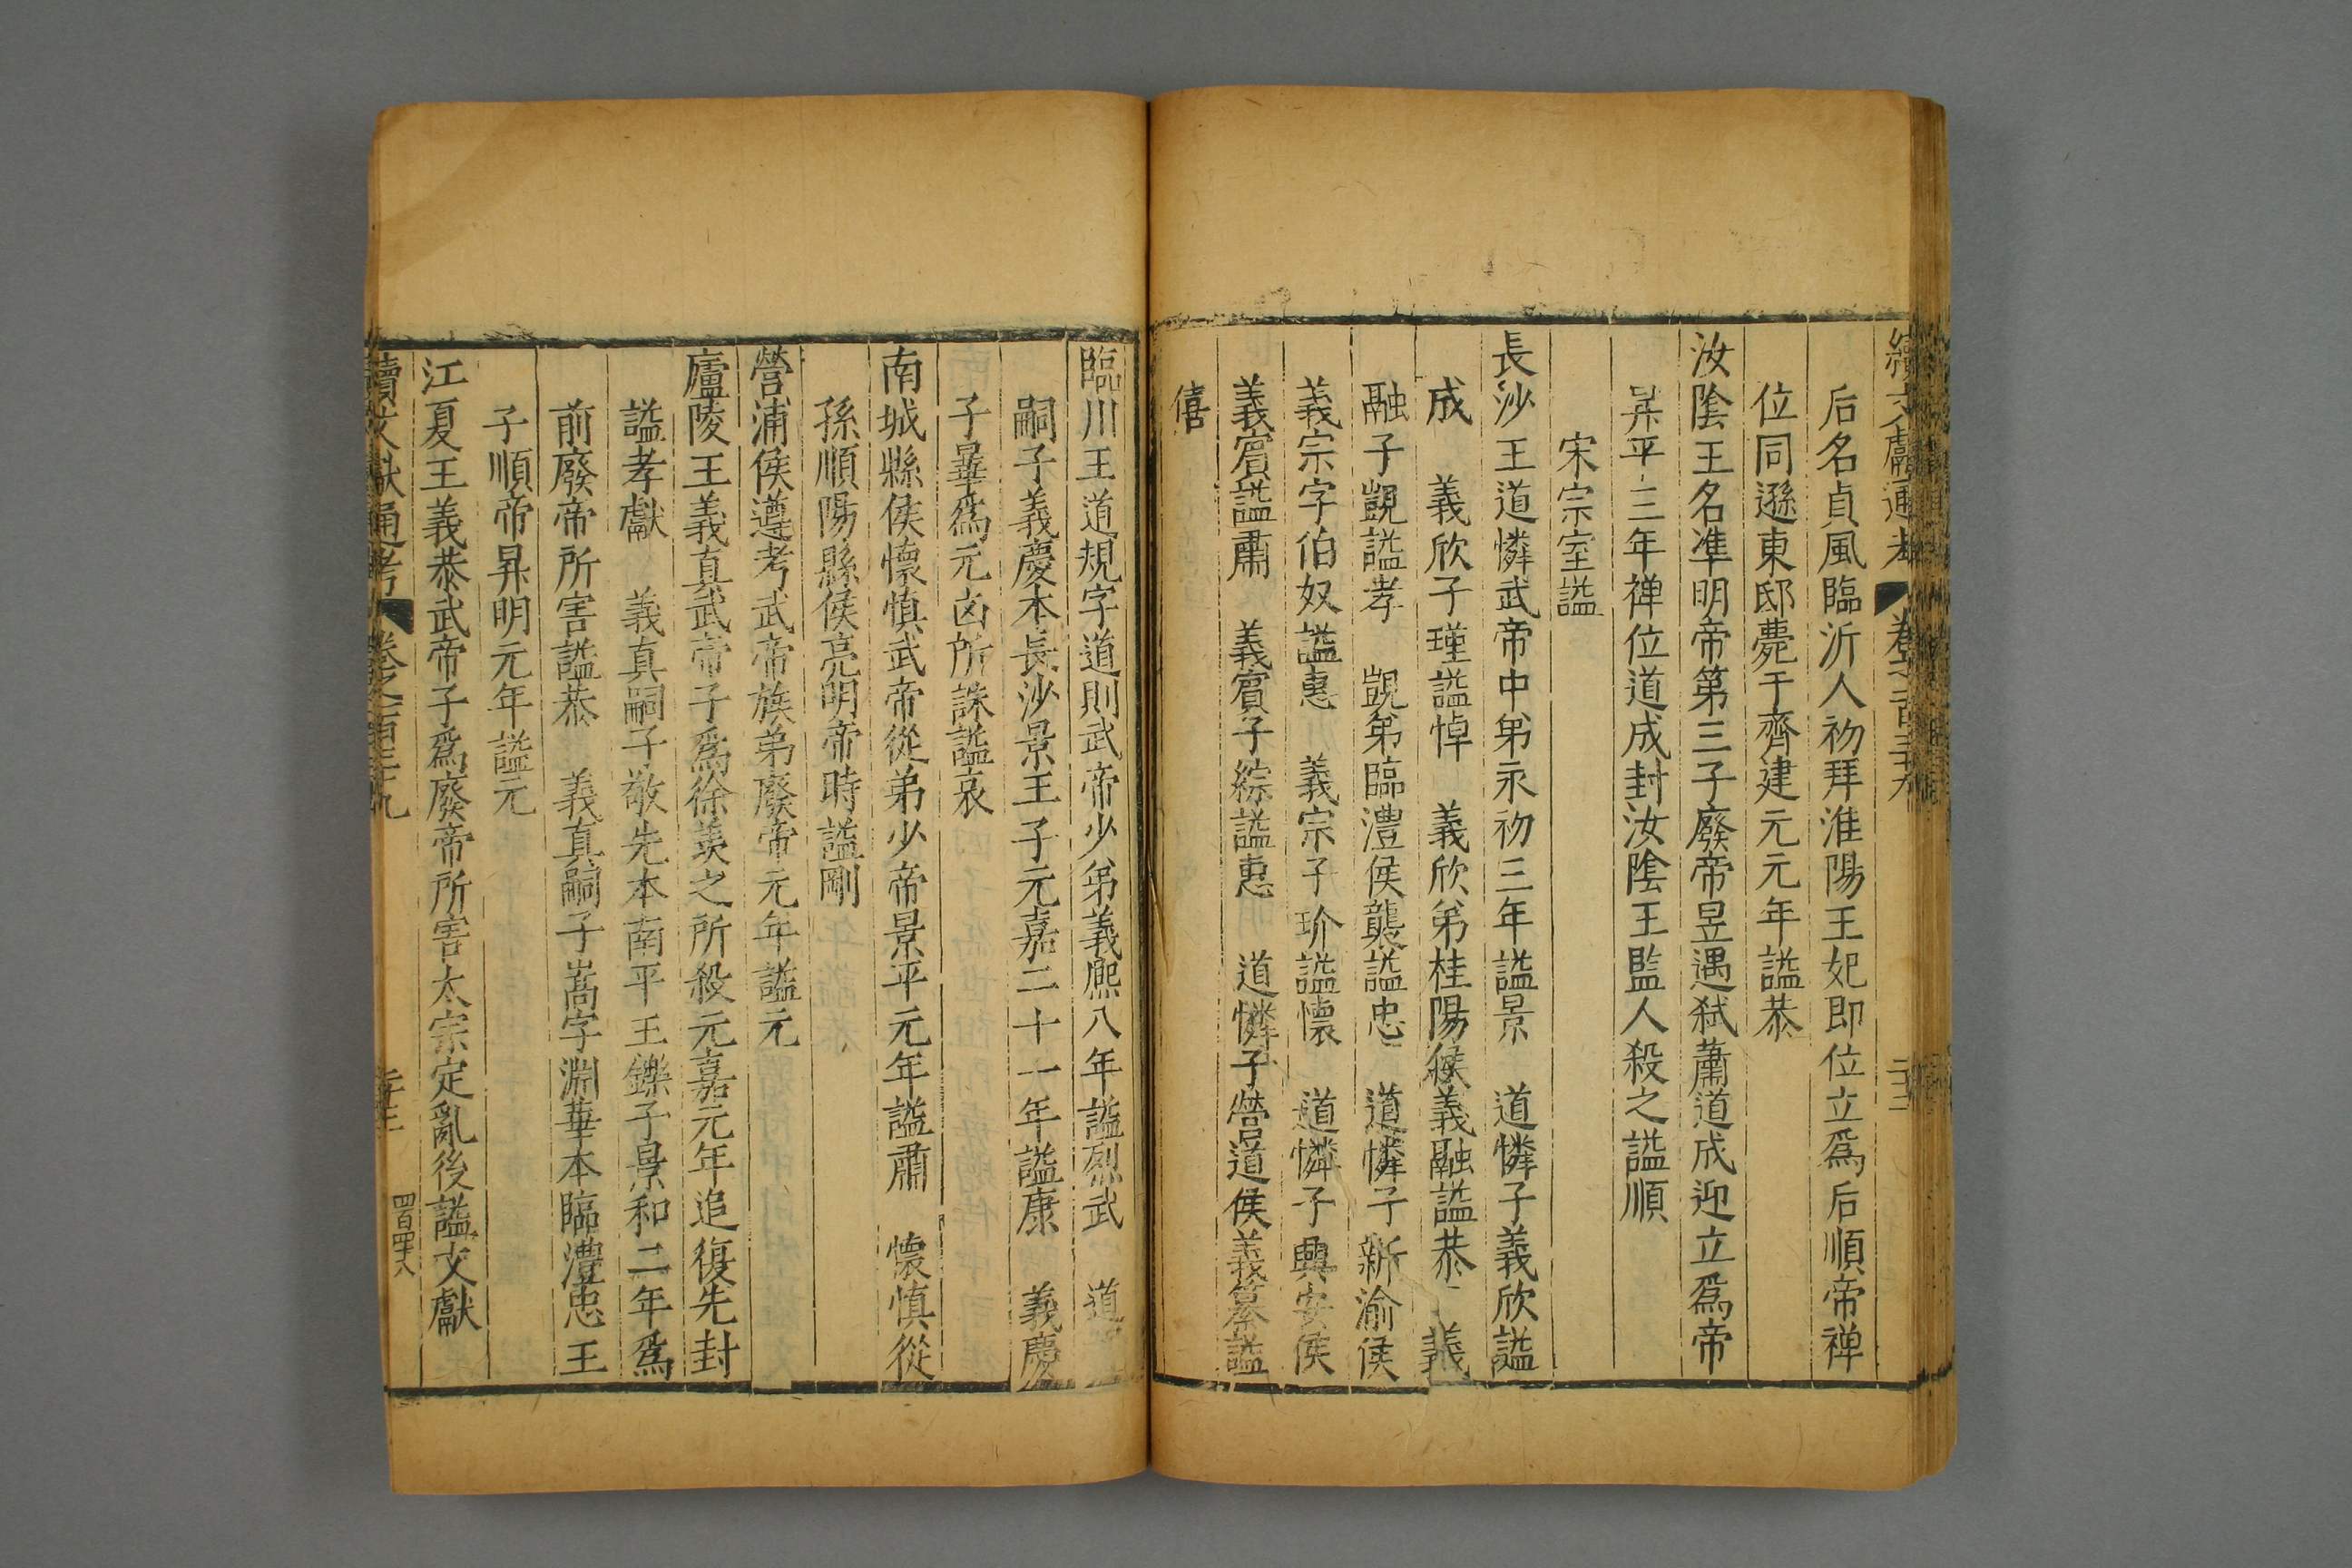 后名貞風臨沂人初拜淮陽王妃即位立爲后順帝禅
位同遜東邸薨于齊建元元年謚恭
汝陰王名凖明帝第三子廢帝昱遇弒蕭道成迎立爲帝
昇平三年禅位道成封汝陰王監人殺之謚順
宋宗室謚
長沙王道憐武帝中弟永初三年謚景 道憐子義欣謚
成 義欣子瑾謚悼 義欣弟桂陽侯義融謚恭 義
融子覬謚孝 覬弟臨澧侯襲謚忠 道憐子新渝侯
義宗字伯奴謚惠 義宗子玠謚懷 道憐子興安侯
義賓謚肅 義賓子綜謚惠 道憐子營道侯義綦謚
僖
臨川王道規字道則武帝少弟義熈八年謚烈武 道
嗣子義慶本長沙景王子元嘉二十一年謚康 義慶
子曅爲元凶所誅謚哀
南城縣侯懷慎武帝從弟少帝景平元年謚肅 懷慎從
孫順陽縣侯亮明帝時謚剛
營浦侯遵考武帝族弟廢帝元年謚元
廬陵王義真武帝子爲徐羡之所殺元嘉元年追復先封
謚孝獻 義真嗣子敬先本南平王鑠子景和二年爲
前廢帝所害謚恭 義真嗣子嵩字淵華本臨澧忠王
子順帝昇明元年謚元
江夏王義恭武帝子爲廢帝所害太宗定亂後謚文獻
續文獻通考 卷之一百三十九 二十三
四百四十八